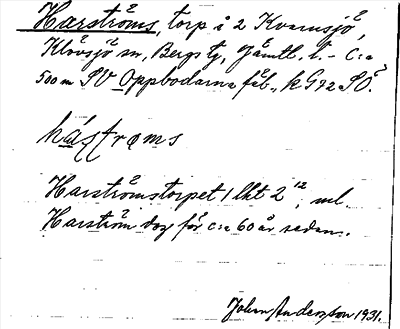 Harströms, torp i 2 Kvarnsjö,
Klövsjö sn, Bergs tg, Jämtl. l. - C:a
500 m SV Oppbodarna fäb., k G92 SÖ.
Harströmstorpet 1 lht 2 12, ml.
Harström dog för c:a 60 år sedan.
John Anderzson 1931.